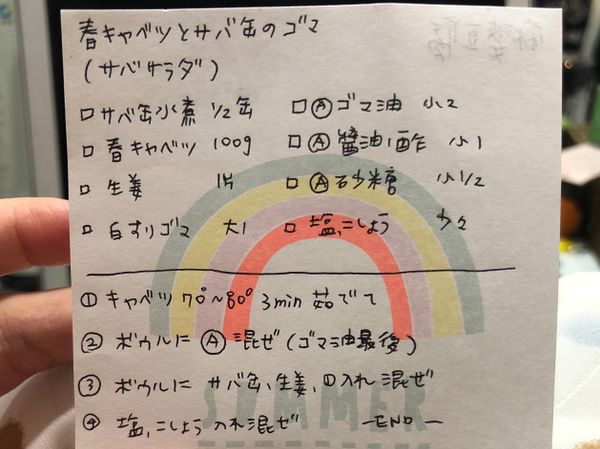 春キャベツとサバ缶のゴマ
(サバサラダ)
□サバ缶水煮 1/2缶 □Ⓐゴマ油 小2
□春キャベツ 100g □Ⓐ醤油,酢 小1
□生姜 1片 □Ⓐ砂糖 小1/2
□白すりゴマ 大1 □塩,こしょう 少々
① キャベツ 70°~80° 3min 茹でて
② ボウルに Ⓐ 混ぜ(ゴマ油最後)
③ ボウルに サバ缶、生姜、①入れ混ぜ
④ 塩,こしょう 入れ混ぜ —END—
SUMMER
麻婆豆腐